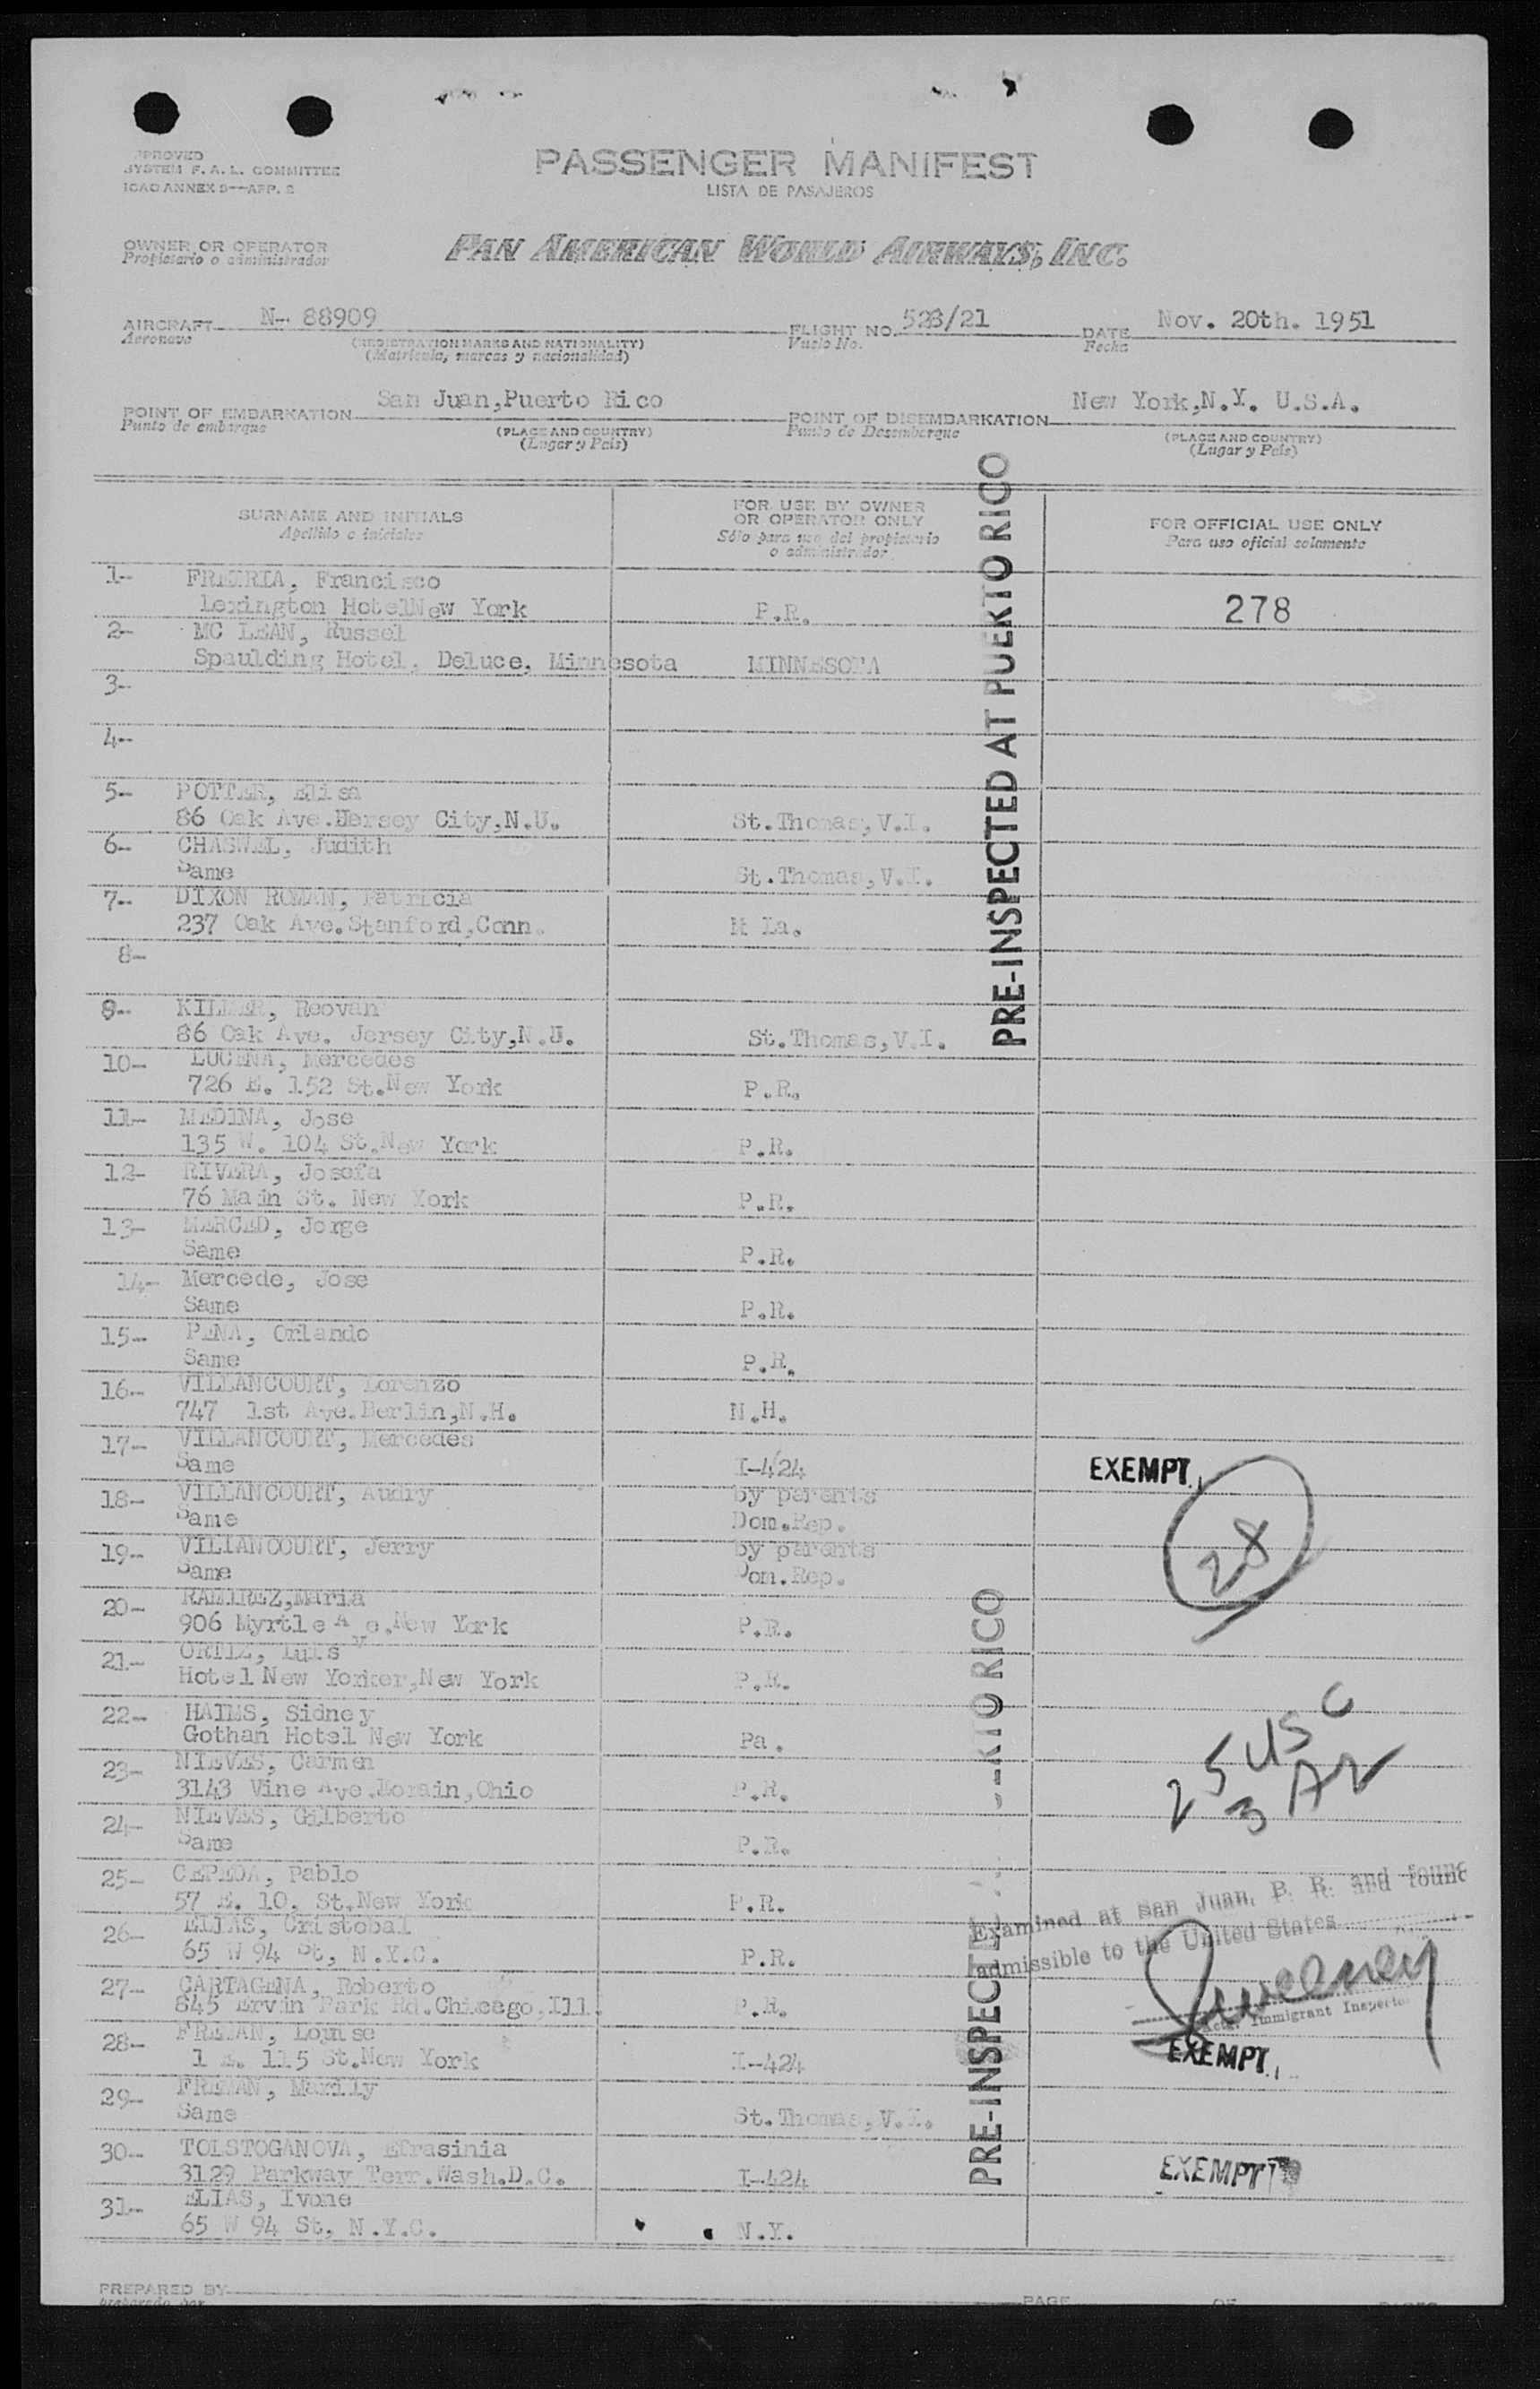 APPROVED
SYSTEM F. A. L. COMMITTEE
ICAO ANNEX 9—APP. 2
PASSENGER MANIFEST
LISTA DE PASAJEROS
OWNER OR OPERATOR
Propietario o administrador
PAN AMERICAN WORLD AIRWAYS, INC.
AIRCRAFT N- 88909 FLIGHT NO. 528/21 DATE Nov. 20th. 1951
Aeronave (REGISTRATION MARKS AND NATIONALITY) Vuelo No. Fecha
(Matrícula, marcas y nacionalidad)
POINT OF EMBARKATION San Juan,Puerto Rico POINT OF DISEMBARKATION New York,N.Y. U.S.A.
Punto de embarque (PLACE AND COUNTRY) Punto de Desembarque (PLACE AND COUNTRY)
(Lugar y País) (Lugar y País)
SURNAME AND INITIALS
Apellido e iniciales
FOR USE BY OWNER
OR OPERATOR ONLY
Sólo para uso del propietario
o administrador
FOR OFFICIAL USE ONLY
Para uso oficial solamente
1- FRERIA, Francisco
Lexington HotelNew York P.R. 278
2- MC LEAN, Russel
Spaulding Hotel, Deluce, Minnesota MINNESOTA
3-
4-
5- POTTER, Elisa
86 Oak Ave.Jersey City,N.J. St.Thomas,V.I.
6- CHASWEL, Judith
Same St.Thomas,V.I.
7- DIXON ROMAN, Patricia
237 Oak Ave.Stanford,Conn. M La.
8-
9- KILMER, Reovan
86 Oak Ave. Jersey City,N.J. St.Thomas,V.I.
10- LUCENA, Mercedes
726 E. 152 St.New York P.R.
11- MEDINA, Jose
135 W. 104 St.New York P.R.
12- RIVERA, Josefa
76 Main St. New York P.R.
13- MERCED, Jorge
Same P.R.
14- Mercede, Jose
Same P.R.
15- PENA, Orlando
Same P.R.
16- VILLANCOURT, Lorenzo
747 1st Ave.Berlin,N.H. N.H.
17- VILLANCOURT, Mercedes
Same I-424 EXEMPT
18- VILLANCOURT, Audry by parents
Same Dom.Rep.
28
19- VILLANCOURT, Jerry by parents
Same Dom.Rep.
20- RAMIREZ,Maria
906 Myrtle Ave,New York P.R.
21- ORTIZ, Luis
Hotel New Yorker,New York P.R.
22- HAIMS, Sidney
Gothan Hotel New York Pa.
25 USC
3 A2
23- NIEVES, Carmen
3143 Vine Ave.Lorain,Ohio P.R.
24- NIEVES, Gilberto
Same P.R.
25- CEPEDA, Pablo
57 E. 10. St.New York P.R.
26- ELIAS, Cristobal
65 W 94 St, N.Y.C. P.R.
Examined at San Juan, P. R. and found
admissible to the United States
Sweeney
Actg. Immigrant Inspector
27- CARTAGENA, Roberto
845 Ervin Park Rd.Chicago,Ill. P.R.
28- FREMAN, Louise
1 E. 115 St.New York I-424 EXEMPT
29- FREMAN, Marilly
Same St.Thomas,V.I.
30- TOLSTOGANOVA, Efrasinia
3129 Parkway Terr.Wash.D.C. I-424 EXEMPT
31- ELIAS, Ivone
65 W 94 St, N.Y.C. N.Y.
PRE-INSPECTED AT PUERTO RICO
PRE-INSPECTE RTO RICO
PREPARED BY PAGE OF PAGES
preparado por